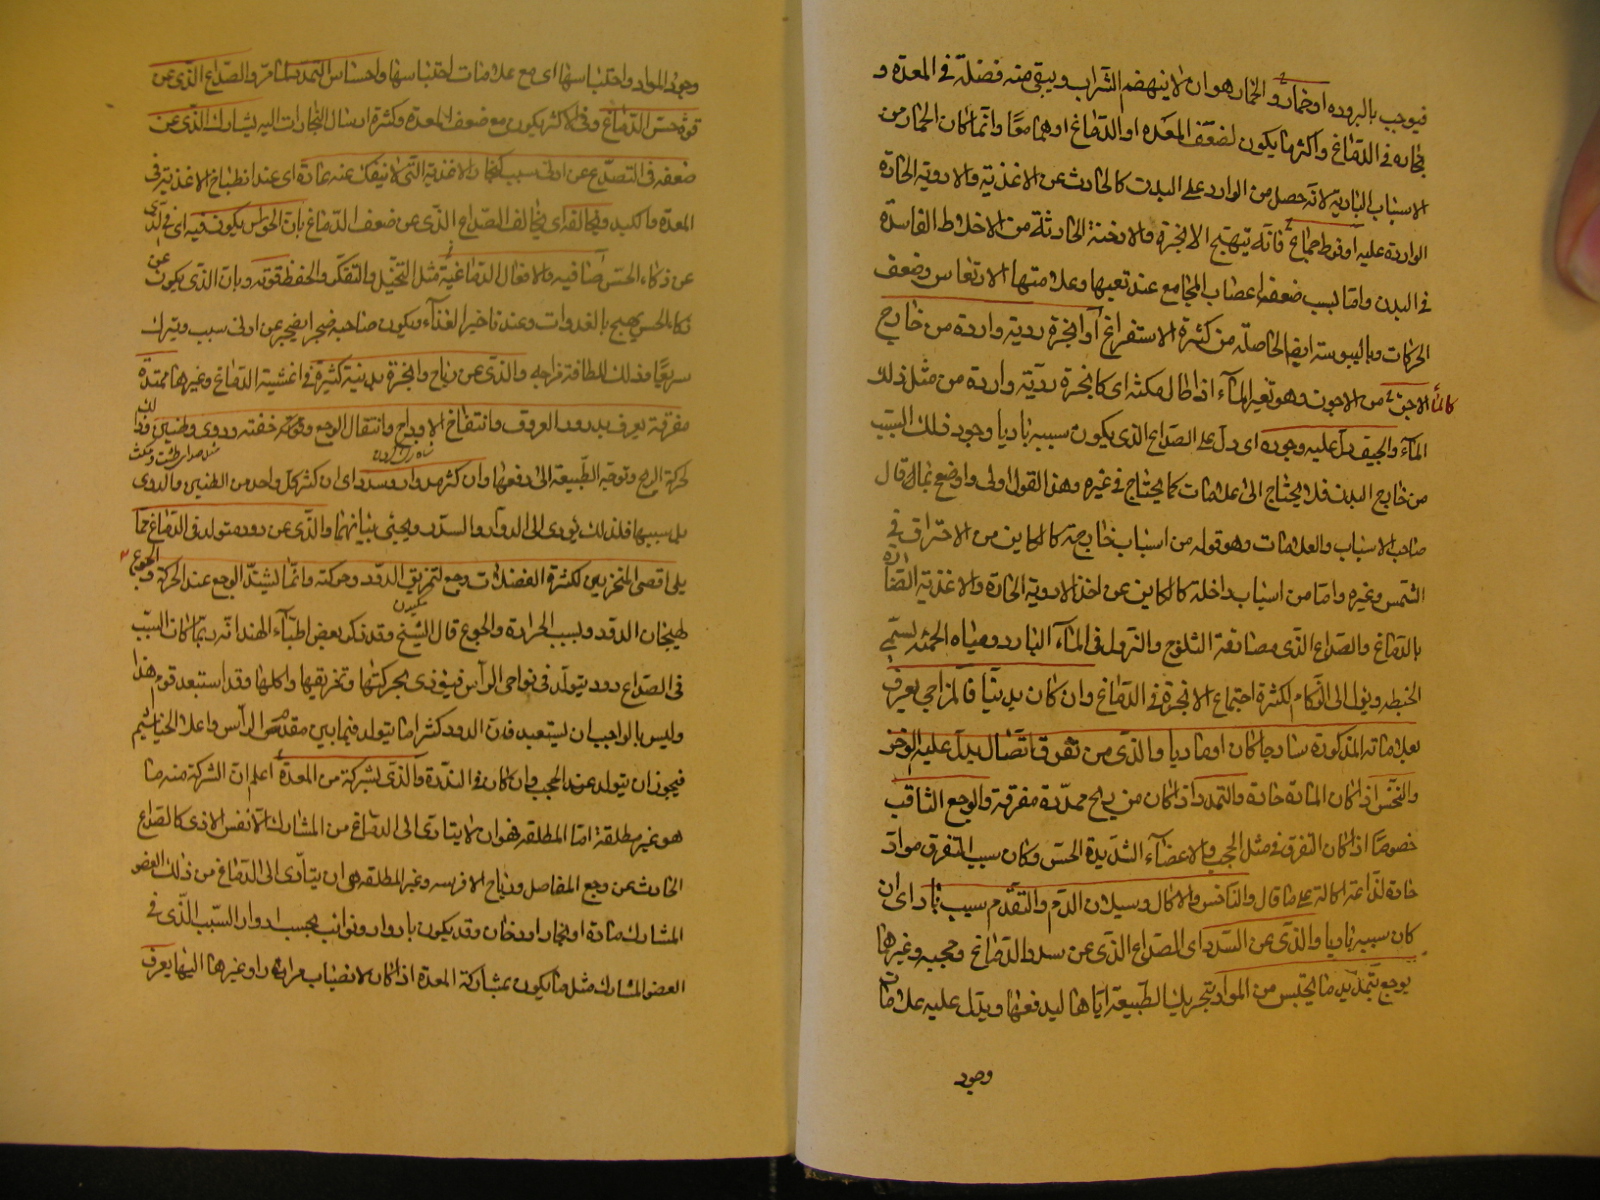 فيوجب بالبروده او خمار و الخمار هو ان لا ينهضم الشراب و يبقى منه فضلة فى المعدة و
بخاره فى الدماغ و اكثرها يكون لضعف المعده او الدماغ او هما معا و انما كان الخمار من
الاسباب البادية لانه حصل من الوارد على البدن كالحادث عن الاغذية و الادوية الحارة
الواردة عليه او فرط جماع فانه يتهيج الابخرة و الادخنة الحادثة من الاخلاط الفاسدة
فى البدن و اما بسبب ضعف اعصاب المجامع عند تعبها و علامتها الارتعاش و ضعف
الحركات و باليبوسة ايضا الحاصلة من كثرة الاستفراغ او ابخرة رديه واردة من خارج
كالماء الاجن من الاجون و هو تغير الماء اذا طال مكثه اى كابخرة ردية واردة من مثل ذلك
الماء و الجيف دل عليه وجوده اى دل على الصداع الذى يكون سببه باديا وجود ذلك السبب
من خارج البدن فلا يحتاج الى علامات كما يحتاج فى غيره و هذا القول اولى و اوضح مما قال
صاحب الاسباب و العلامات و هو قوله من اسباب خارجة كالكاين من الاحتراق فى
الشمس و غيره و اما من اسباب داخلة كالكاين عن اخذ الادوية الحارة و الاغذية الضارة
بالدماغ و الصداع الذى من مصادفة الثلوج و النزول فى الماء البارد و مياه الحمئة يسمى
الخبطه و يؤل الى الزكام لكثرة اجتماع الابخرة فى الدماغ و ان كان بدنيا فالمزاجى يعرف
بعلاماته المذكورة ساذجا كان او ماديا و الذى من تفرق اتصال يدل عليه الوخز
و النخس اذا كان المادة حادة و التمدد اذا كان من ريح ممددة مفرقة و الوجع الثاقب
خصوصا اذا كان التفرق فى مثل الحجب و الاعضاء الشديدة الحس و كان سبب التفرق مواد
حادة لذاعة اكالة على ما قال و الناخس و الاكال و سيلان الدم و التقدم سبب باد اى ان
كان سببه باديا و الذى عن السدد اى الصداع الذى عن سدد الدماغ و حجبه و غيرهما
يوجع بتمديد ما يحتبس من المواد بتحريك الطبيعة اياها ليدفعها و يدل عليه علامات
وجود
وجود المواد و احتباسها اى مع علامات احتباسها و احساس التمدد كما مر و الصداع الذى عن
قوة حس الدماغ و فى الاكثر يكون مع ضعف المعدة و كثرة ارسال البخارات اليه يشارك الذى عن
ضعفه فى التصدع عن ادنى سبب كبخار الاغذية التى لا ينفك عنه عادة اى عند انطباخ الاغذية فى
المعدة و الكبد و يخالفه اى يخالف الصداع الذى عن ضعف الدماغ بان الحواس يكون فيه اى فى الذى
عن ذكاء الحس صافية و الافعال الدماغية مثل التخيل و التفكر و الحفظ قوية و بان الذى يكون عن
ذكاء الحس يهيج بالغدوات و عند تاخير الغذاء و يكون صاحبه ضجرا يضجر عن ادنى سبب و يترك
سريعا و ذلك للطافة مزاجه و الذى عن رياح و ابخرة بدنية كثيرة فى اغشية الدماغ و غيرها ممددة
مفرقة يعرف بدرور العروق و انتفاخ الاوداج و انتقال الوجع و خفته و دوى و طنين و ذلك
لحركة الريح و توجه الطبيعة الى دفعها و ان كثر دوار و سدر اى ان كثر كل واحد من الطنين و الدوى
بل سببها فلذلك يؤدى الى الدوار و السدر و يجئ بيانهما و الذى عن دود متولد فى الدماغ مما
يلى اقصى المنخرين لكثرة الفضلات وجع لتمزيق الدود و حركته و انما يشتد الوجع عند الحركة و الجوع
لهيجان الدود بسبب الحرارة و الجوع قال الشيخ و قد ذكر بعض اطباء الهند انه ربما كان السبب
فى الصداع دود يتولد فى نواحى الراس فيؤذى بحركتها و تمزيقها و اكلها و قد استبعد قوم هذا
و ليس بالواجب ان يستبعد فان الدود كثيرا ما يتولد فيما بين مقدم الراس و اعلا الخياشيم
فيجوز ان يتولد عند الحجب و ان كان فى الندرة و الذى بشركة من المعدة اعلم ان الشركة منه ما
هو غير مطلقة اما المطلقة فهو ان لا يتادى الى الدماغ من المشارك الا نفس الاذى كالصداع
الحادث عن وجع المفاصل و رياح الافرسه و غير المطلقة هى ان يتادى الى الدماغ من ذلك العضو
المشارك مادة او بخار او دخان و قد يكون بادوار و نوائب بحسب ادوار السبب الذى فى
العضو المشارك مثل ما يكون بمشاركة المعدة اذا كان لانصباب مرارة او غيرها اليها يعرف